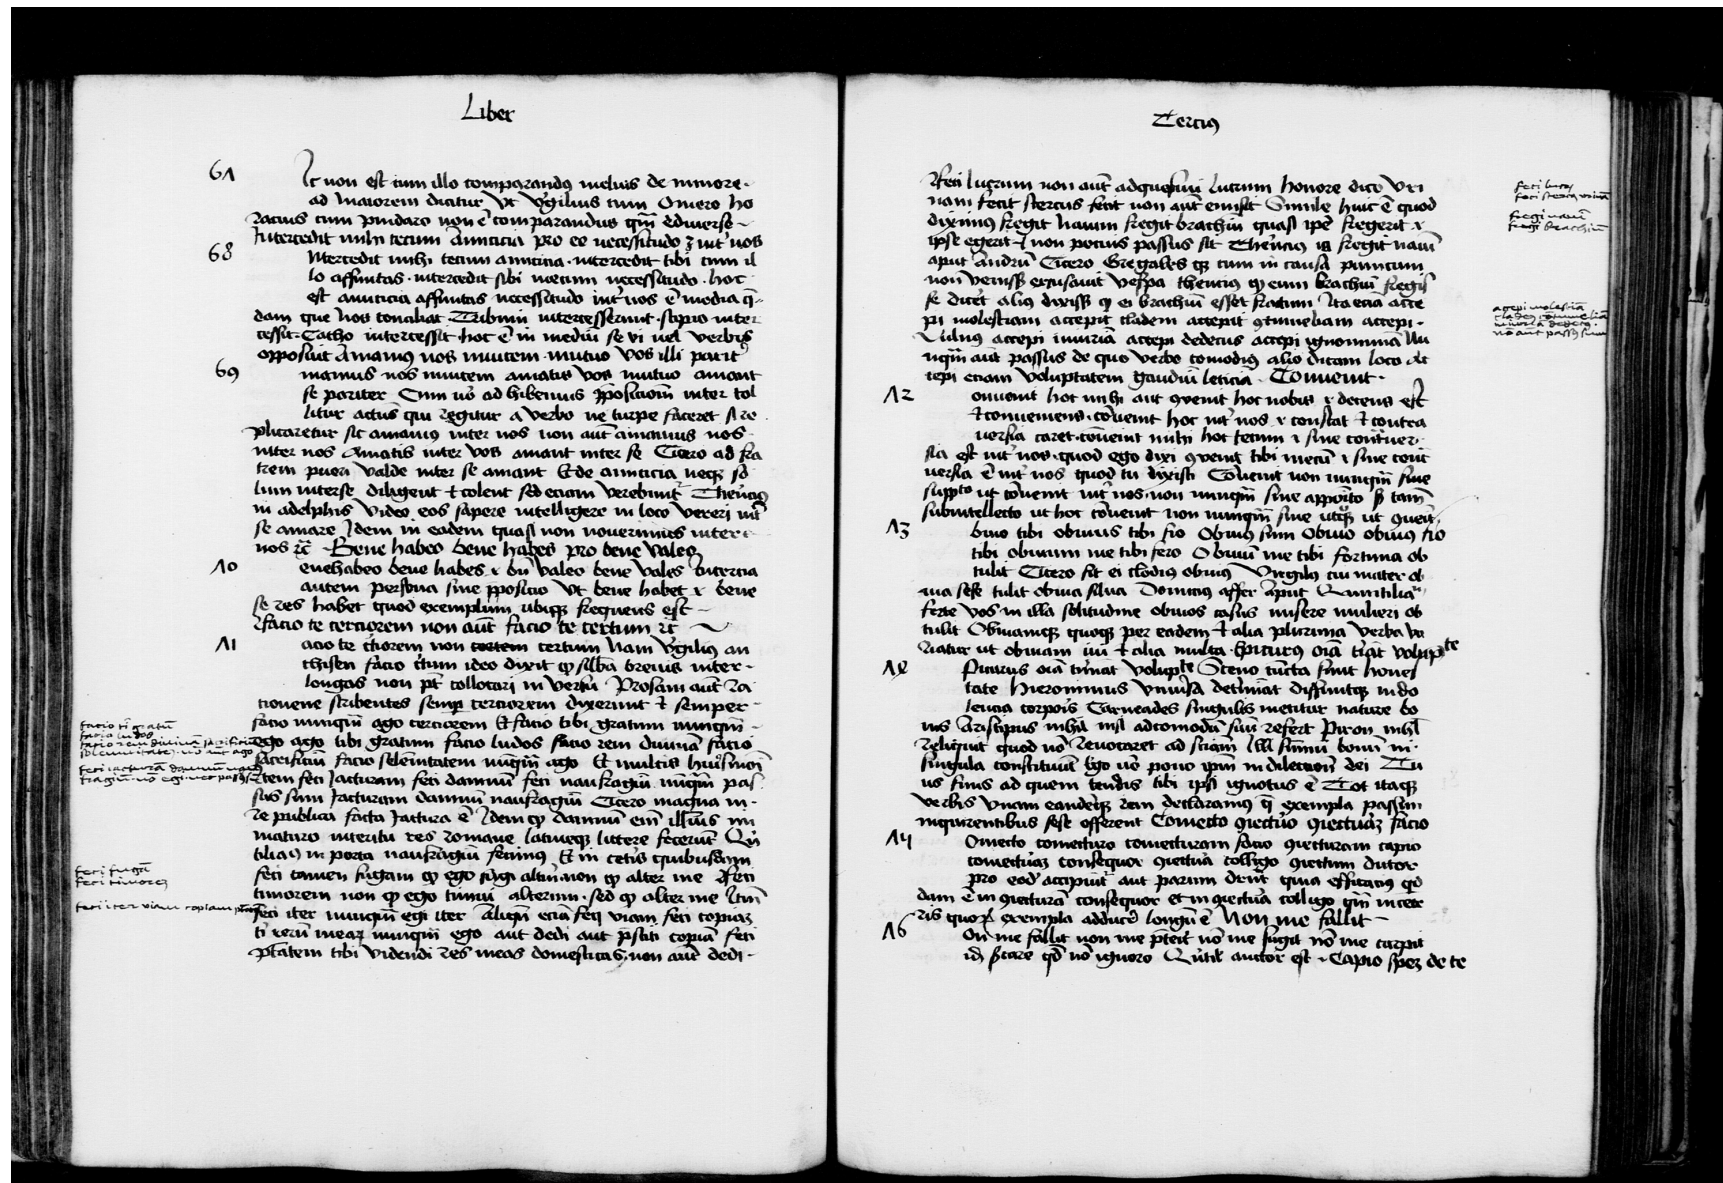 Liber
61
Ic non est cum illo comparandꝰ meluis de minore.
ad maiorem dicitur Vt Vgilius cum Omero ho
racius cum pindaro non ē comparandus qm̄ ediuerso
Intercedit mihi tecum amicicia pro ee necessitudo int' nos
68
Ntercedit mihi tecum amicicia. intercedit tibi cum il
lo affinitas. intercedit sibi mecum necessitudo. hoc
est amicicia affinitas necessitudo int' nos ē media q̄
dam que nos conciliat. Tribuni intercesserunt. scipio inter
cessit. Catho intercessit. hoc ē in mediū se vi uel verbis
opposuit Amamus nos inuicem. mutuo vos illi parit'
69
mamus nos inuicem amatis vos mutuo amant
se pariter Cum uō adhibemus p̄posicioīm inter tol
litur actus qui regitur a verbo ne turpe faceret si re
plicaretur sic amamꝰ inter nos non aūt amamus nos
inter nos Amatis inter vos amant inter se Cicero ad fra
trem pueri valde inter se amant Et de amicicia neqꝫ so
lum interse diligent ⁊ colent sed eciam verebunt' Therēciꝰ
in adelphis Video eos sapere intelligere in loco vereri int'
se amare Idem in eadem quasi non nouerimus inter
nos ⁊c̄ Bene habeo bene habes pro bene valeo
10
enehabeo bene habes .i. bn̄ valeo bene vales Intercia
autem persona sine p̄posicio Vt bene habet .i. bene
se res habet quod exemplum ubiqꝫ frequens est
Facio te cerciorem non aūt facio te certum ⁊c
11
acio te c'ciorem non certum Nam Vgilius an
chisen facio c'tum ideo dixit qꝫ silba breuis inter
longas non pt̄ collocari in versu Prosam aūt ra
cionene scribentes semp̱ cerciorem dixerunt ⁊ semper
facio nunqm̄ ago cerciorem Et facio tibi gratum nunqm̄
ego ago tibi gratum facio ludos facio rem diuinā facio
sacrificiū facio solēmitatem nūqm̄ ago Et multis huiꝰmoī
Item feci Iacturam feci damnū feci naufragiū nūqm̄ pas
sus sum Iacturam damnū naufragiū Cicero magna in
re publica facta Iactura ē Idem qꝫ damnū eīm illius im
maturo interitu res romane latineqꝫ littere fecerūt Qui
tilianꝰ in porta naufragiū fecimꝰ Et in ceteris quibusdam
feci tamen fugam qꝫ ego fugi altm̄ non qꝫ alter me Feci
timorem non qꝫ ego timui alterum. sed qꝫ alter me Itm̄
feci iter nunqm̄ egi iter Aliqn̄ eciā feci viam feci copiaꝫ
ti rerū mearꝫ nunqm̄ ego aut dedi aut p̄stiti copiā feci
p̄tatem tibi videndi res meas domesticas non aūt dedi
facio ti gratū
facio ludos
facio rem diuinā sacrificiū
solemnitatē. nō aūt ago
feci iacturā damnū nau
fragiū nō egi uer passꝰ
feci fugā
feci timorē
feci iter viam copiam
Tercius
Feci lucrum non aūt adquesiui lucrum honore dico Vri
nam fecit stercus fecit non aūt emisit Simile huic ē quod
diximus fregit nauim fregit brachiū quasi ipē fregerit .i.
ipse egerit ⁊ non pocius passus sit Therēcius is fregit nauī
aput andrū Cicero Gregales qꝫ cum in causa
nō venisꝫ excusauit vespa therēcius qꝫ eum brachiū fregis
se dicēt alius dixisꝫ qꝫ ei brachiū esset fractum Ita eciā acce
pi molestiam accepit cladem accepit ꝯtumeliam accepi.
vulnꝰ accepi iniuriā accepi dedecus accepi ignominiā Nu
nqm̄ aūt passus de quo verbo comodiꝰ alio dicam loco Ac
cepi eciam voluptatem gaudiū leticiā. Conuenit.
12
onuenit hoc mihi aut ꝯuenit hoc nobis .i. decens est
⁊ conueniens. cōuenit hoc int' nos .i. constat ⁊ contra
uersia caret. cōuenit mihi hoc tecum .i. sine cont'uer
sia est int' nos. quod ego dixi ꝯuenit tibi mecū .i. sine cont'
uersia ē int' nos quod tu dixisti Cōuenit non nunqm̄ sine
suppto ut cōuenit int' nos. non nunqm̄ sine apposito sꝫ tam̄
subintellecto ut hoc cōuenit non nunqm̄ sine utqꝫ ut ꝯuēit
13
buio tibi obuius tibi fio Obuiꝰ sum Obuio obuiꝰ fio
tibi obuium me tibi fero Obuiū me tibi fortuna ob
tulit Cicero fit ei clodiꝰ obuiꝰ Virgiliꝰ cui mater ob
uia sese tulit obuia silua Domiciꝰ affer aput Quintiliā
ferte vos in illa solitudine obuios casus misere mulieri ob
tulit Obuiamqꝫ quoqꝫ per eadem ⁊ alia plurima verba va
riatur ut obuiam iui ⁊ alia multa. Epicurꝰ oīa tīat volupte
14
Picurus oīa tm̄iat volupte Steno cūcta siint hones
tate Hieronimus vniuersa det'miat diffinitqꝫ indo
lencia corporis Carneades singulis metitur nature bo
nis Aristipus nihil nisi ad comodū suū refert Piron nihl
reliquit quod nō reuocaret ad sciam̄ Vll summū bonū in
singula constituūt Ego uō pono ipm̄ in dilectioē dei Tu
us finis ad quem tendis tibi ipsi ignotus ē Tot itaqꝫ
verbis vnam eandēqꝫ rem declaramus q̄ exempla passim
inquirentibus sese offerent Comecto ꝯiectūo ꝯiecturaꝫ facio
15
Omecto comecturo comecturam facio ꝯiecturam capio
comectūaꝫ consequor ꝯiectūa colligo ꝯiectum ducor
pro eod' accipiunt' aut parum dr̄nt quia efficatiꝰ qd̄
dam ē in ꝯiecturā consequor et in ꝯiectūa colligo qm̄ in cete
ris quorꝫ exempla adducere longū ē Non me fallit
16
On me fallit non me p̄terit nō me fugit nō me carpit
id scire qd̄ nō ignoro Quītil' auctor est. Capio speꝫ de te
feci lucrꝫ
feci stercꝰ urinā
fregi nauī
fregi brachiū
accepi molestiā
cladem cōtumeliā
iniuriā dedecꝰ
nō aūt passꝰ sum